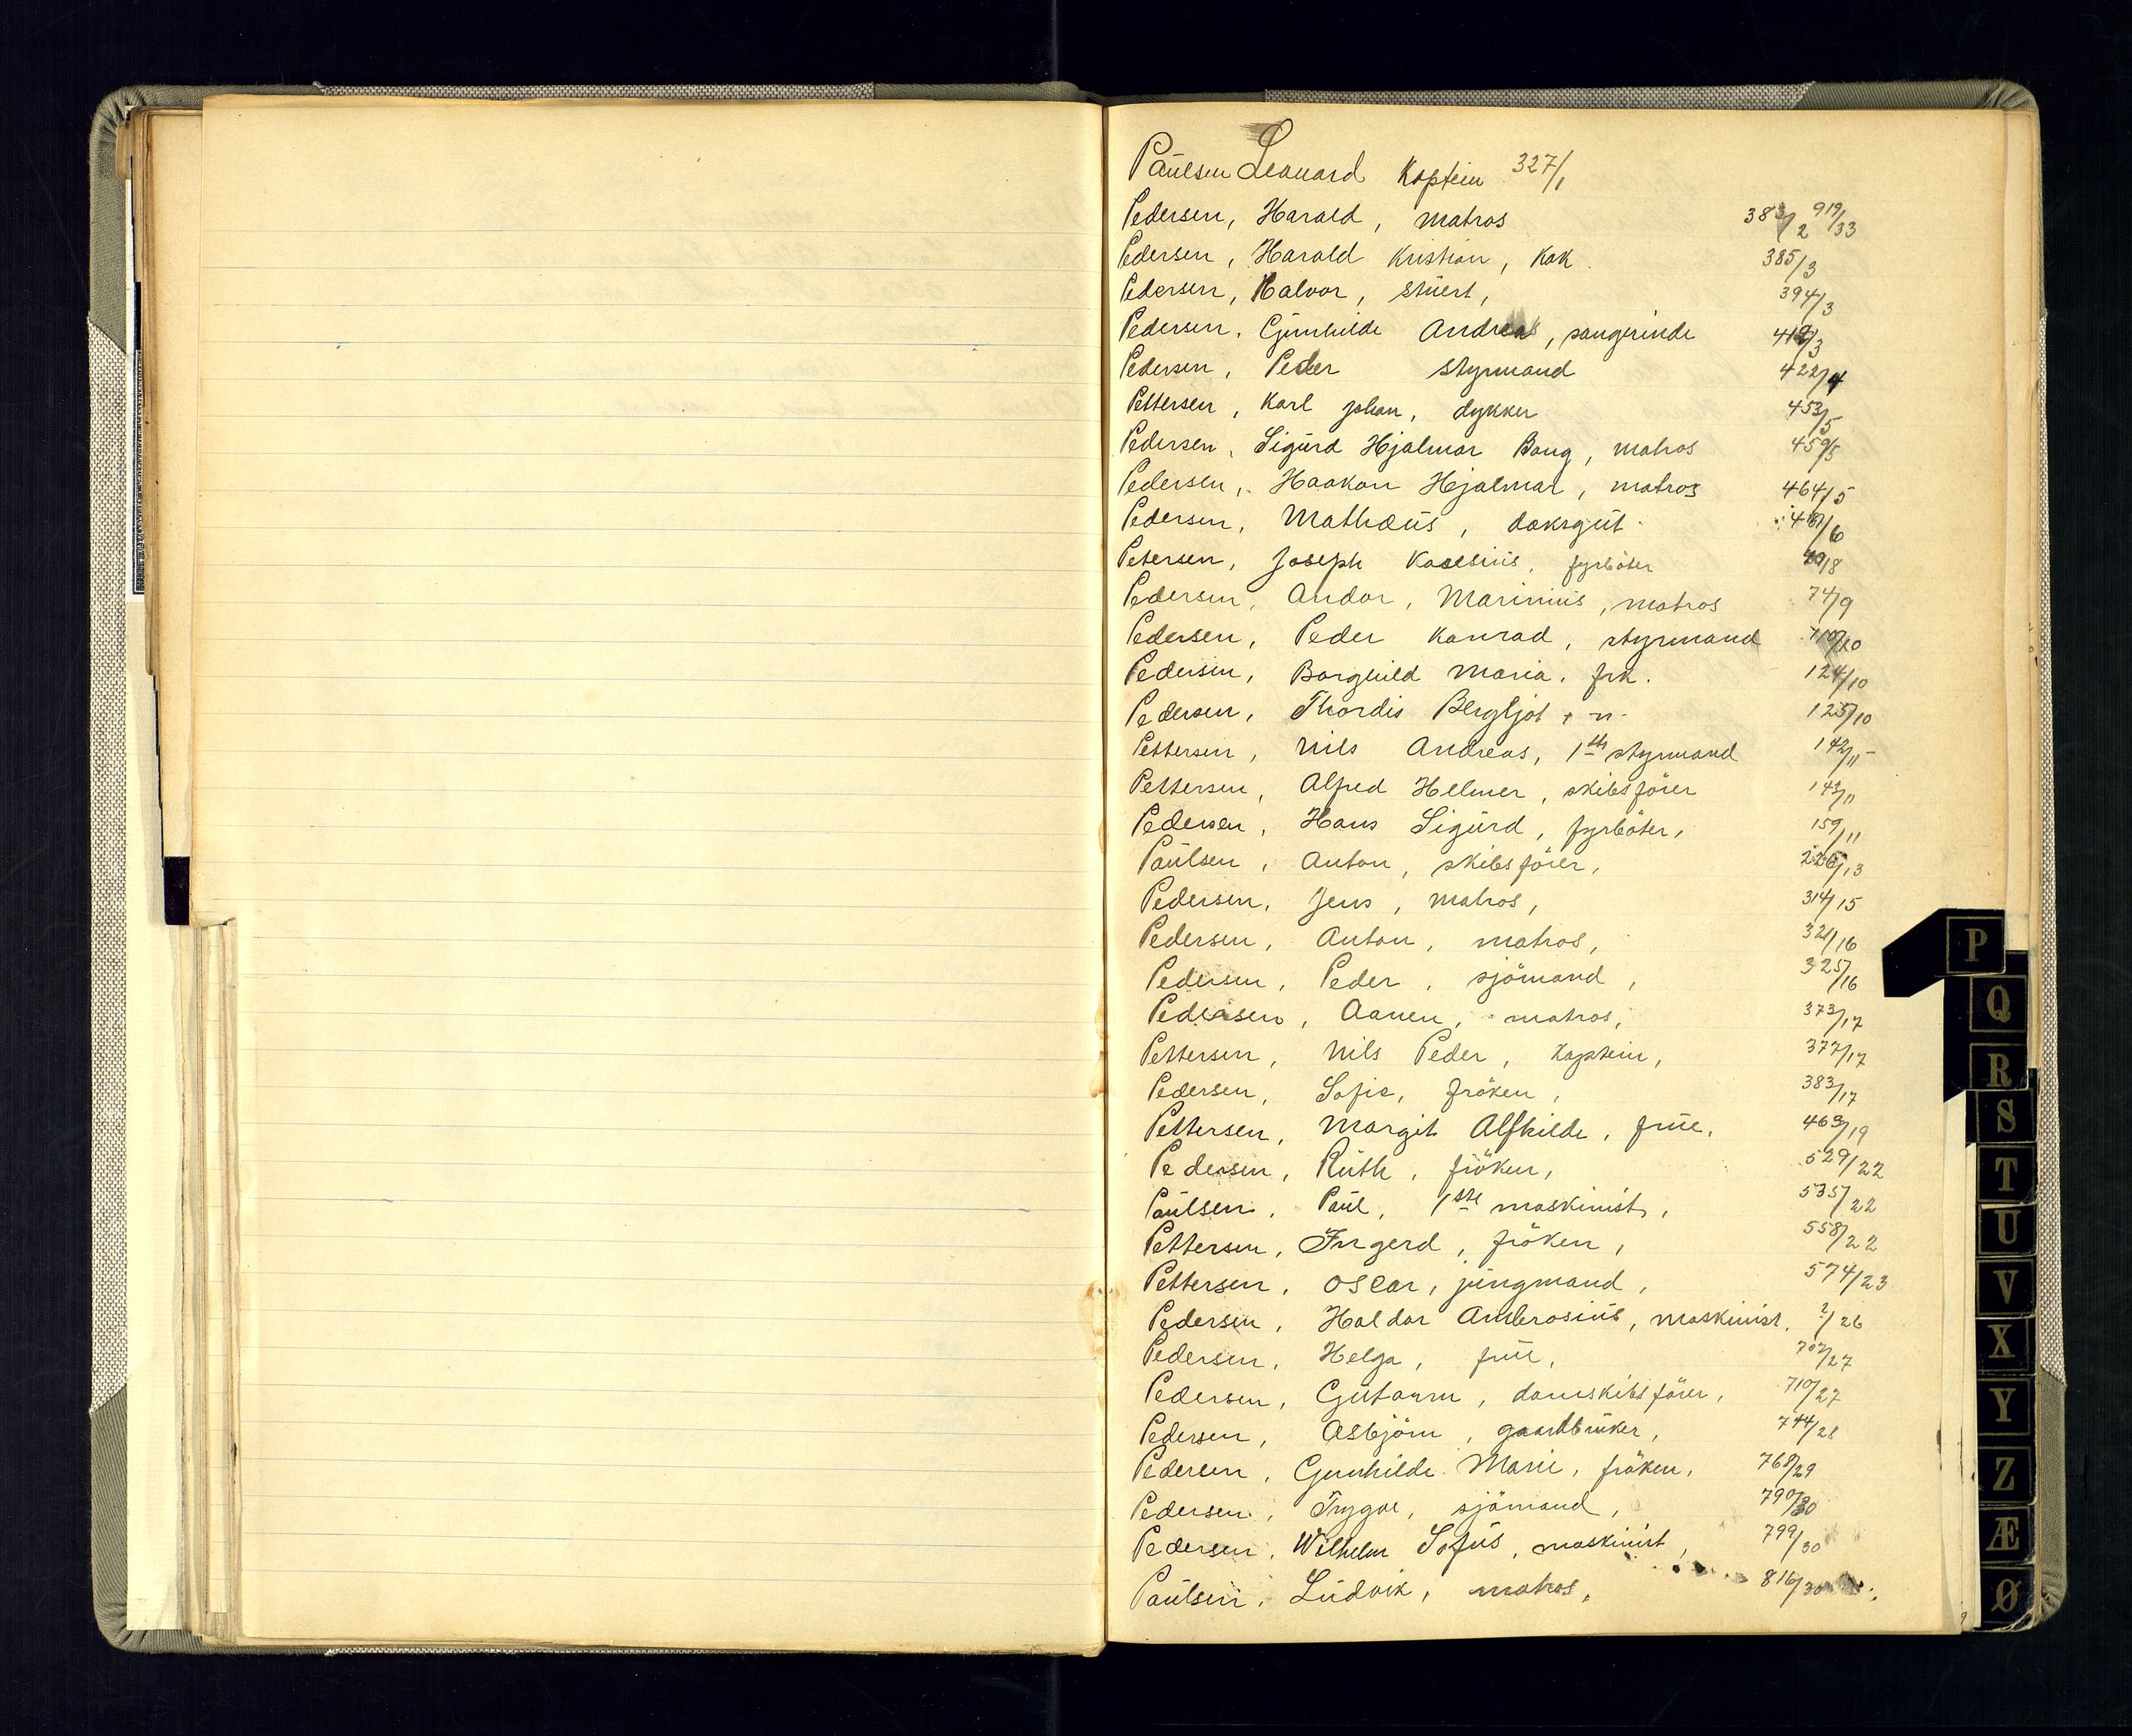 Paülsen Leonard Kaptein 327/1
Pedersen, Harald, matros 383/2 919/33
Pedersen, Harald Kristian, Kok. 385/3
Pedersen, Halvor, stüert, 394/3
Pedersen, Günhilde Andrea, sangerinde
Pedersen, Peder styrmand 422/4
Pettersen, Karl Johan, dykker 453/5
Pedersen, Sigürd Hjalmar Bang, matros 459/5
Pedersen, Haakon Hjalmar, matros 464/5
Pedersen, Mathæüs, daksgüt
Petersen, Joseph fyrböter
Pedersen, Andor, Marinius, matros 74/9
Pedersen, Peder Konrad, styrmand
Pedersen, Borghild Maria, frk. 124/10
Pedersen, Thordis Bergljot, -"- 125/10
Pettersen, Nils Andreas, 1ste styrmand 142/11
Pettersen, Alfred Helmer, skibsförer 143/11
Pedersen, Hans Sigürd, fyrböter, 159/11
Paülsen, Anton, skibsförer,
Pedersen, Jens, matros, 314/15
Pedersen, Anton, matros, 321/16
Pedersen, Peder, sjömand, 325/16
Pedersen, Aanen, matros, 373/17
Pettersen, Nils Peder, Kaptein, 377/17
Pedersen, Sofie, fröken, 383/17
Pettersen, Margit Alfhilde, früe, 463/19
Pedersen, Rüth, fröken, 529/22
Paülsen, Paül, 1ste maskinist, 535/22
Pettersen, Ingerd, fröken, 558/22
Pettersen, Oscar, jüngmand, 574/23
Pedersen, Haldor Ambrosiüs, maskinist, ?/26
Pedersen, Helga, früe, 702/27
Pedersen, Gütorm, damskibsförer, 710/27
Pedersen, Asbjörn, gaardbrüker, 744/28
Pedersen, Gunhilde Marie, fröken, 768/29
Pedersen, Trygve, sjömand, 790/30
Pedersen, Wilhelm Sofüs, maskinist, 799/30
Paülsen, Lüdvik, matros, 816/30
P
Q
R
S
T
U
V
X
Y
Z
Æ
Ø